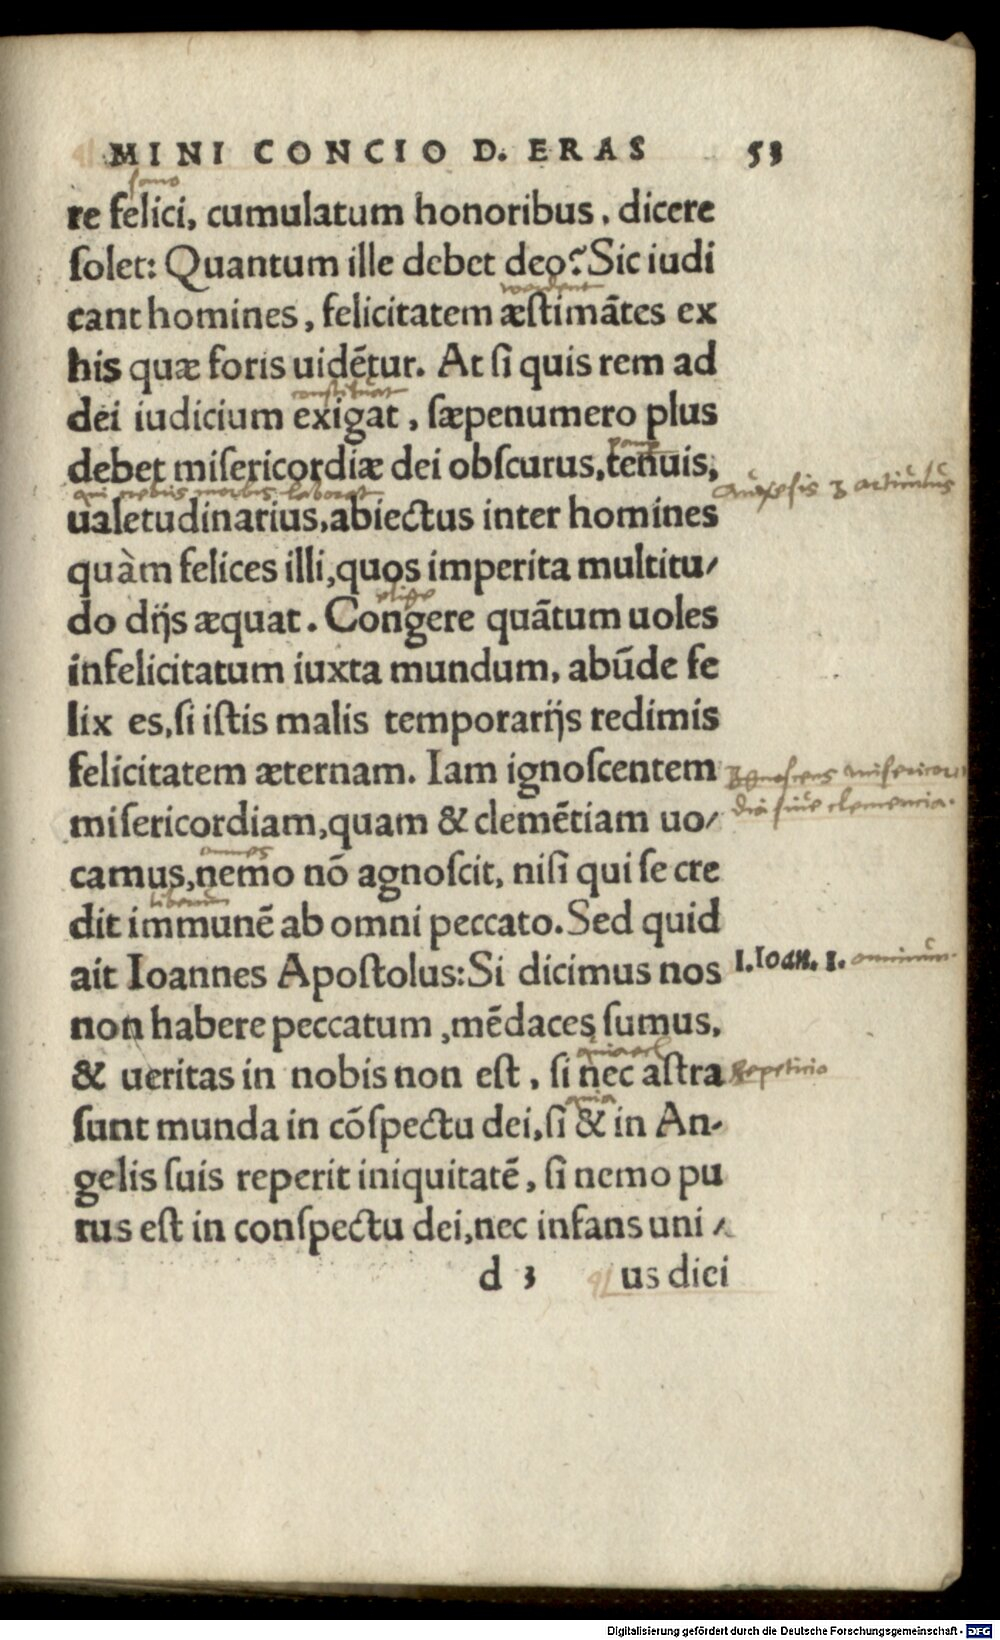 MINI CONCIO D. ERAS 53
re felici, cumulatum honoribus, dicere
solet: Quantum ille debet deo? Sic iudi
cant homines, felicitatem æstimātes ex
his quæ foris uidētur. At si quis rem ad
constituat
dei iudicium exigat, sæpenumero plus
debet misericordiæ dei obscurus, tenuis,
qui morbis laborat
ualetudinarius, abiectus inter homines
quàm felices illi, quos imperita multitu/
do dijs æquat. Congere quātum uoles
infelicitatum iuxta mundum, abūde fe
lix es, si istis malis temporarijs redimis
felicitatem æternam. Iam ignoscentem
Ignoscens misericor
misericordiam, quam & clemētiam uo/
dia siue clemencia.
omnes
camus, nemo nō agnoscit, nisi qui se cre
liberum
dit immunē ab omni peccato. Sed quid
ait Ioannes Apostolus: Si dicimus nos I. Ioan. I.
non habere peccatum, mēdaces sumus,
& ueritas in nobis non est, si nec astra Repeticio
quia
sunt munda in cōspectu dei, si & in An-
gelis suis reperit iniquitatē, si nemo pu
rus est in conspectu dei, nec infans uni/
d 3 us diei
Digitalisierung gefördert durch die Deutsche Forschungsgemeinschaft - DFG